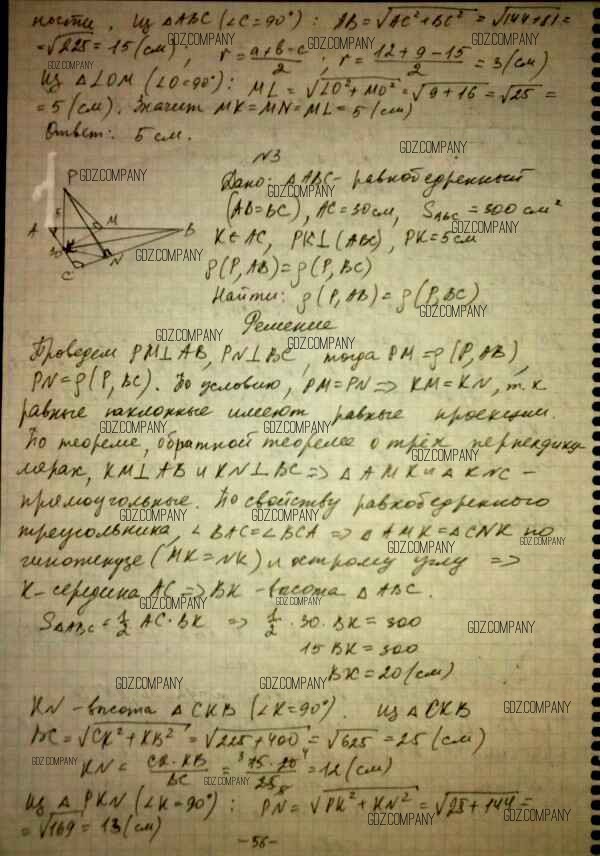 ности. Из △ABC (∠C=90°): AB = √AC²+BC² = √144+81 =
= √225 = 15 (см), r = a+b-c/2; r = 12+9-15/2 = 3 (см)
Из △LOM (∠O=90°): ML = √LO²+MO² = √9+16 = √25 =
= 5 (см). Значит MK=MN=ML=5 (см)
Ответ: 5 см.
GDZ.COMPANY
№3
P
GDZ.COMPANY
Дано: △ABC - равнобедренный
(AB=BC), AC=30 см, S_ABC = 300 см²
K∈AC, PK⊥(ABC), PK=5 см
ρ(P, AB) = ρ(P, BC)
Найти: ρ(P, AB) = ρ(P, BC)
5
M
A
B
30
K
N
C
GDZ.COMPANY
Решение
Проведем PM⊥AB, PN⊥BC, тогда PM = ρ(P, AB),
PN = ρ(P, BC). По условию, PM=PN => KM=KN, т.к.
равные наклонные имеют равные проекции.
По теореме, обратной теореме о трёх перпендику-
лярах, KM⊥AB и KN⊥BC => △AMK и △KNC -
прямоугольные. По свойству равнобедренного
треугольника, ∠BAC=∠BCA => △AMK=△CNK по
гипотенузе (MK=NK) и острому углу =>
K - середина AC => BK - высота △ABC.
S△ABC = 1/2 AC·BK => 1/2·30·BK = 300
15 BK = 300
BK = 20 (см)
GDZ.COMPANY
KN - высота △CKB (∠K=90°). Из △CKB
BC = √CK²+KB² = √225+400 = √625 = 25 (см)
KN = CK·KB/BC = 15·20/25 = 12 (см)
Из △PKN (∠K=90°): PN = √PK²+KN² = √25+144 =
= √169 = 13 (см)
-56-